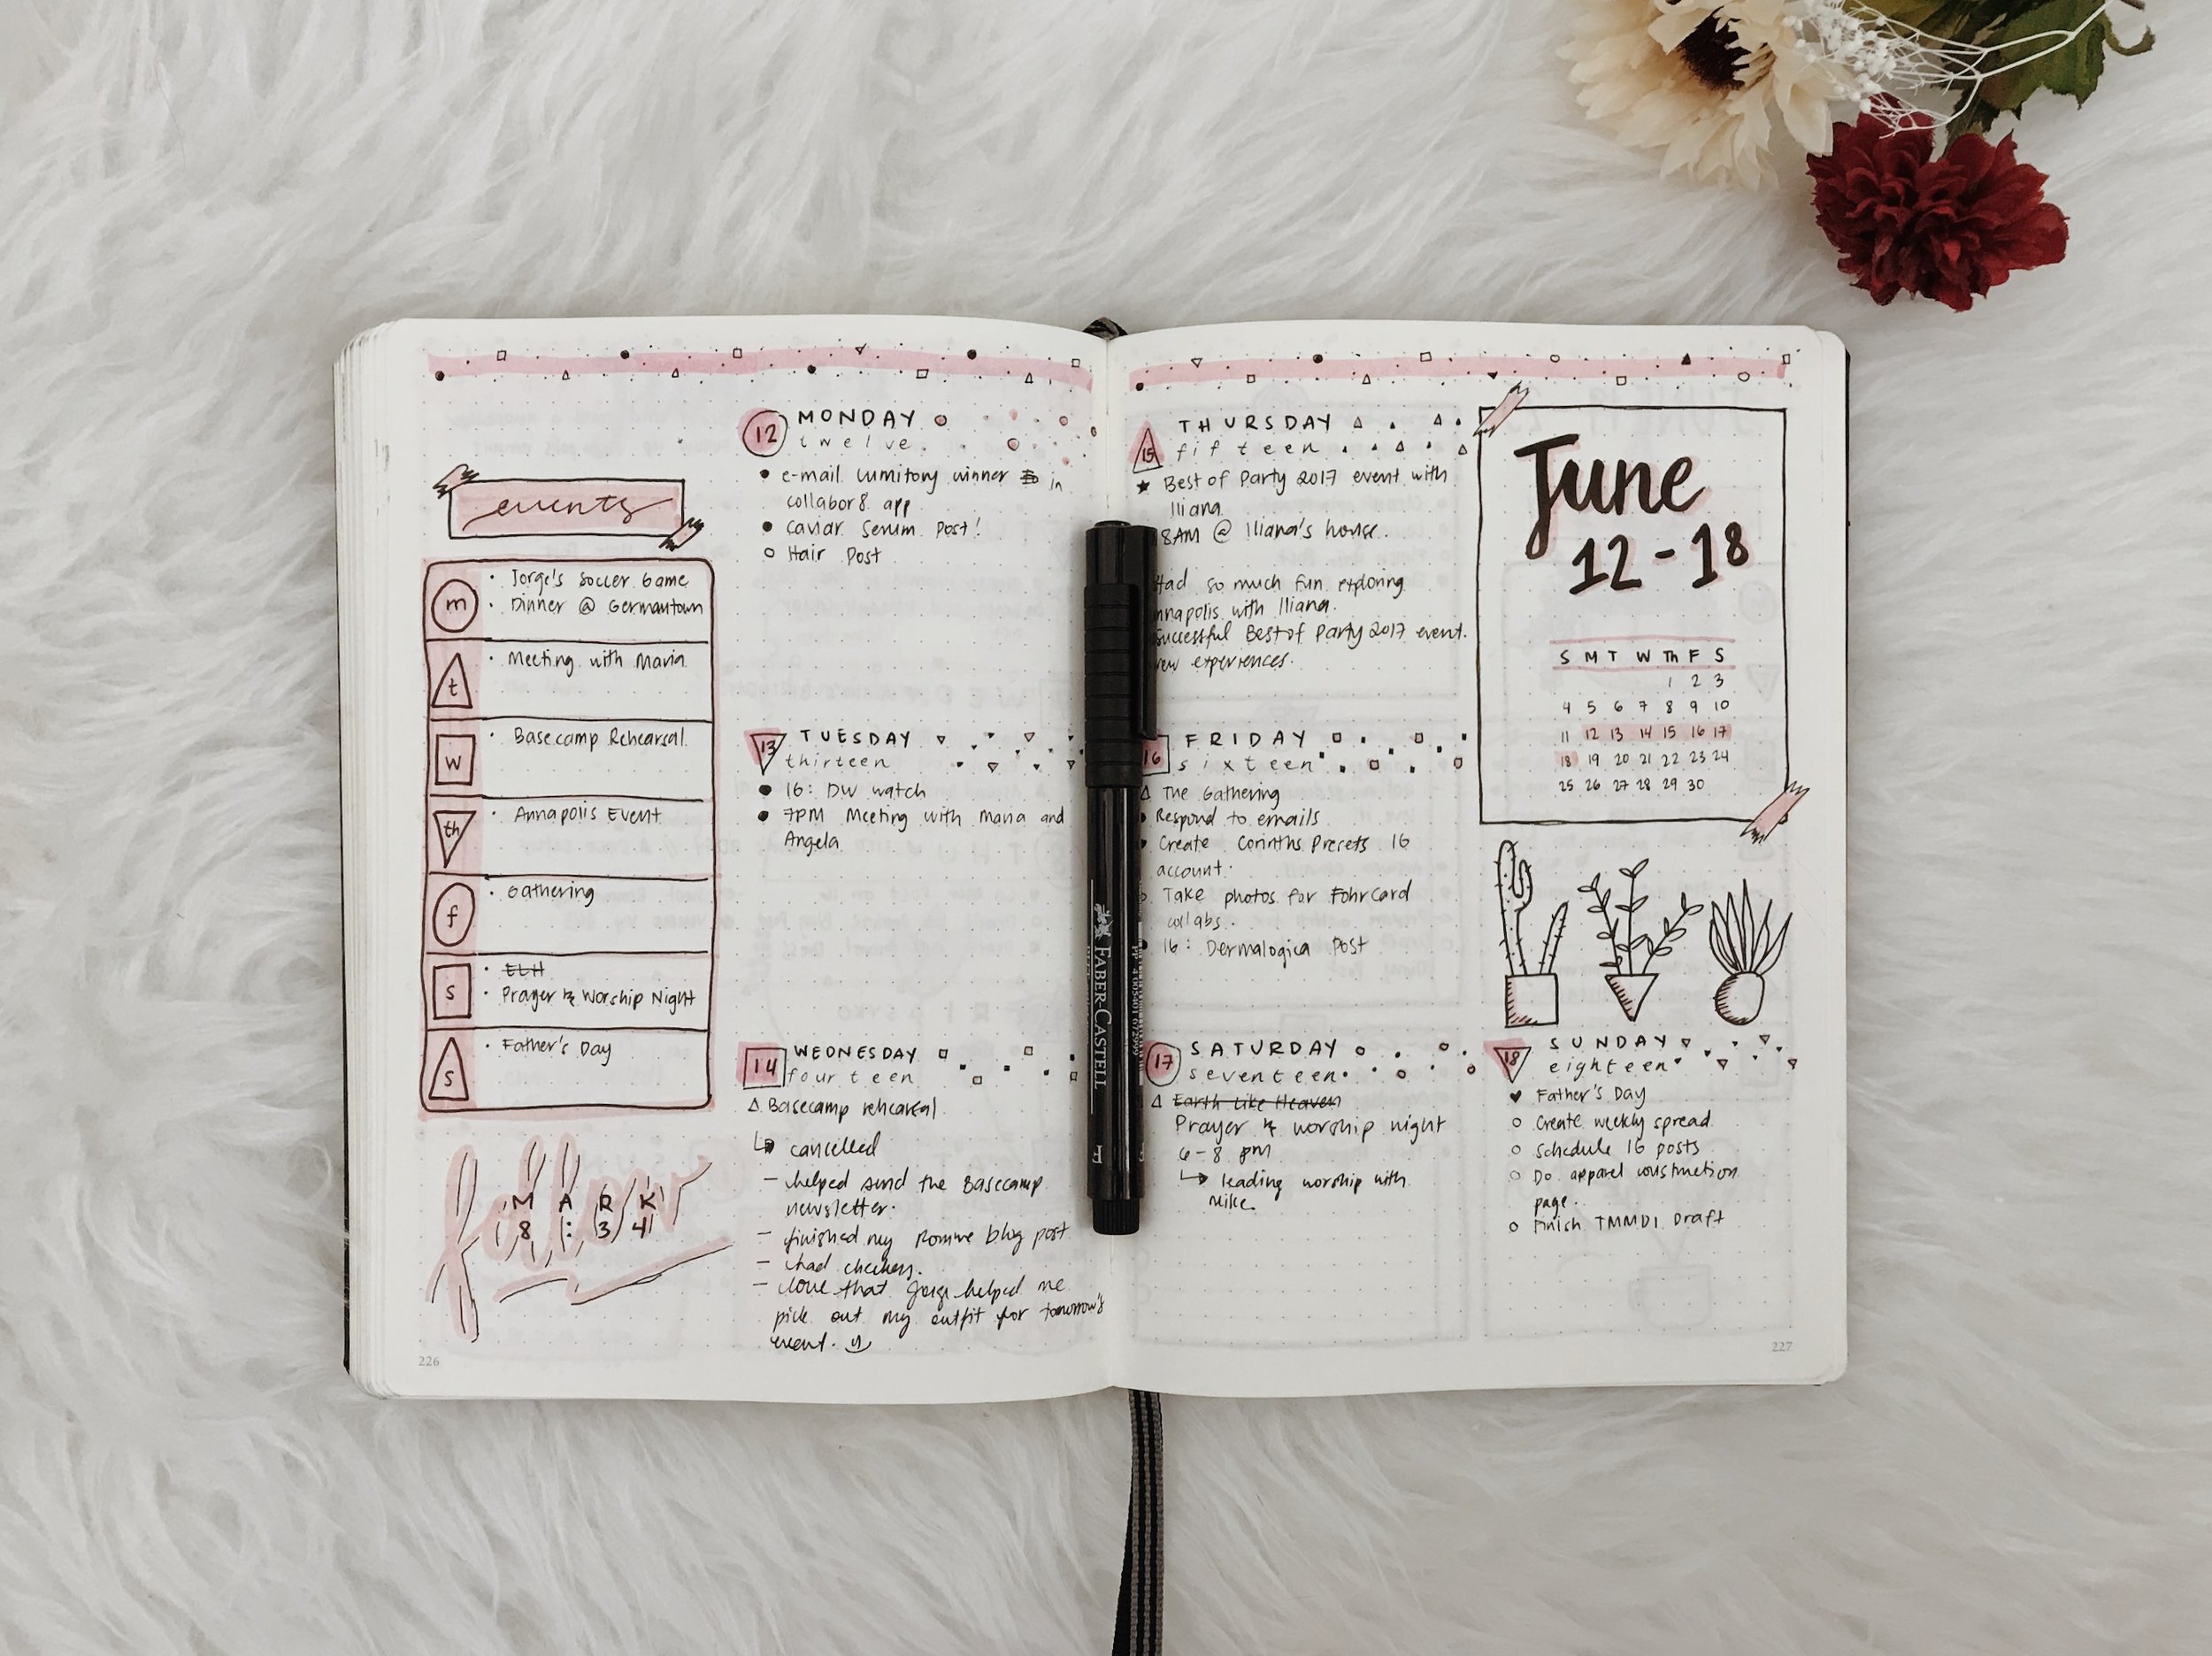 events
m
Jorge's Soccer Game
Dinner @ Germantown
t
Meeting with Maria
w
Basecamp Rehearsal
th
Annapolis Event
f
Gathering
s
ELH
Prayer & Worship Night
s
Father's Day
follow
MARK
8:34
226
12 MONDAY
twelve
e-mail Lumitory winner in
collabor8 app
Caviar Serum Post!
Hair Post
13 TUESDAY
thirteen
16: DW watch
7PM Meeting with Maria and
Angela
14 WEDNESDAY
fourteen
Basecamp rehearsal
cancelled
- helped send the Basecamp
newsletter.
- finished my Romwe blog post
- had
- love that Jorge helped me
pick out my outfit for tomorrow's
event.
FABER-CASTELL
15 THURSDAY
fifteen
Best of Party 2017 event with
Iliana
8AM @ Iliana's house.
Had so much fun exploring
nnapolis with Iliana.
successful Best of Party 2017 event.
new experiences.
16 FRIDAY
sixteen
The Gathering
Respond to emails
Create Corinths Presets 16
account.
Take photos for Fohrcard
collabs.
16: Dermalogica Post
17 SATURDAY
seventeen
Earth Like Heaven
Prayer & worship night
6-8 pm
leading worship with
Mike.
June
12-18
S M T W Th F S
1 2 3
4 5 6 7 8 9 10
11 12 13 14 15 16 17
18 19 20 21 22 23 24
25 26 27 28 29 30
18 SUNDAY
eighteen
Father's Day
Create weekly spread
Schedule 16 posts
Do apparel construction
page.
Finish TMMDI Draft
227